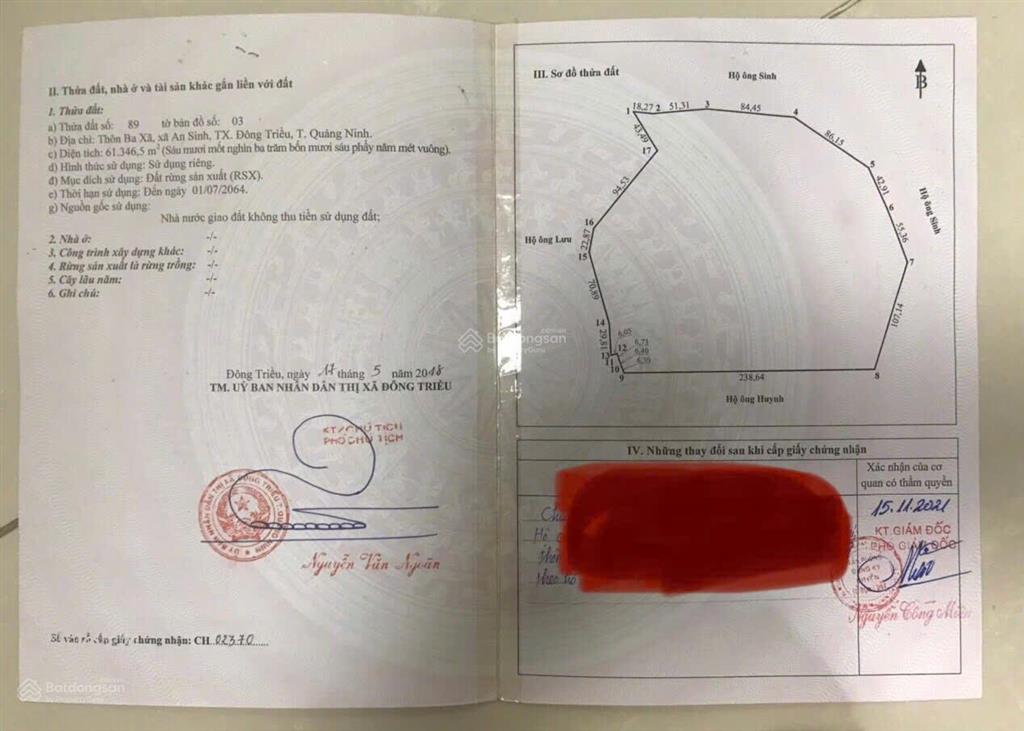 II. Thửa đất, nhà ở và tài sản khác gắn liền với đất
1. Thửa đất:
a) Thửa đất số: 89 tờ bản đồ số: 03
b) Địa chỉ: Thôn Ba Xã, xã An Sinh, TX. Đông Triều, T. Quảng Ninh.
c) Diện tích: 61.346,5 m² (Sáu mươi mốt nghìn ba trăm bốn mươi sáu phẩy năm mét vuông).
d) Hình thức sử dụng: Sử dụng riêng.
đ) Mục đích sử dụng: Đất rừng sản xuất (RSX).
e) Thời hạn sử dụng: Đến ngày 01/07/2064.
g) Nguồn gốc sử dụng:
Nhà nước giao đất không thu tiền sử dụng đất;
2. Nhà ở: -/-
3. Công trình xây dựng khác: -/-
4. Rừng sản xuất là rừng trồng: -/-
5. Cây lâu năm: -/-
6. Ghi chú: -/-
Đông Triều, ngày 17 tháng 5 năm 2018
TM. UỶ BAN NHÂN DÂN THỊ XÃ ĐÔNG TRIỀU
KT/CHỦ TỊCH
PHÓ CHỦ TỊCH
Nguyễn Văn Ngoãn
Số vào sổ cấp giấy chứng nhận: CH 02370
Batdongsan
III. Sơ đồ thửa đất
Hộ ông Sinh
B
1 18,27 2 51,31 3 84,45 4
43,49
86,15
17
5
94,53
42,91
6
Hộ ông Sinh
16
55,36
Hộ ông Lưu
22,87
15
7
70,89
107,14
14
6,05
29,81
12 6,73
13
11 6,40
10 6,39
9 238,64 8
Hộ ông Huynh
Batdongsan
by PropertyGuru
IV. Những thay đổi sau khi cấp giấy chứng nhận
Xác nhận của cơ
quan có thẩm quyền
15.11.2021
KT.GIÁM ĐỐC
PHÓ GIÁM ĐỐC
Nguyễn Công